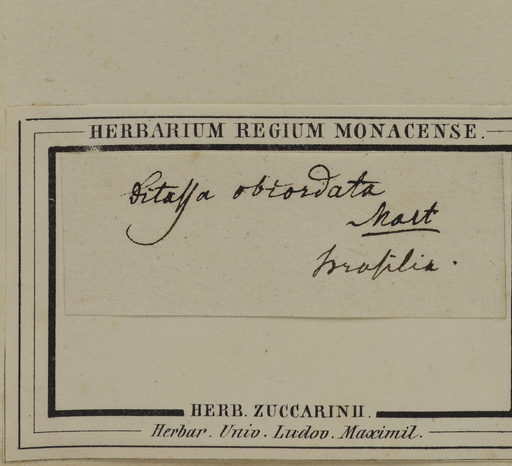 HERBARIUM REGIUM MONACENSE.
Ditassa obcordata
Mart
brasilia.
HERB. ZUCCARINII.
Herbar. Univ. Ludov. Maximil.